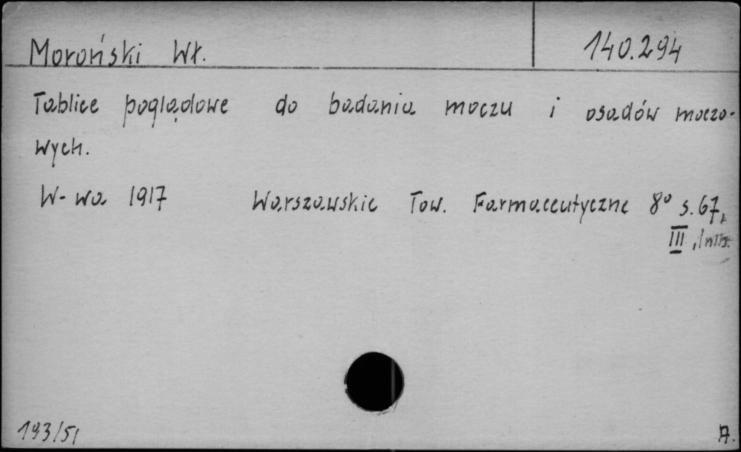 Moroński Wł. 140.294
Tablice poglądowe do badania moczu i osadów moczo-
wych.
W-wa 1917 Warszawskie Tow. Farmaceutyczne 8° s. 67,
III,
193/51 A.